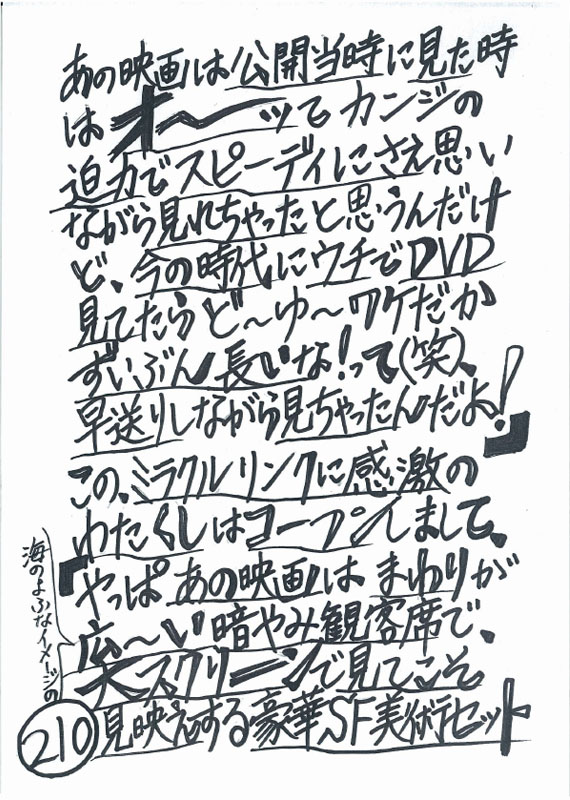 あの映画は公開当時に見た時
はオ〜ッてカンジの
迫力でスピーディにさえ思い
ながら見れちゃったと思うんだけ
ど、今の時代にウチでDVD
見てたらど〜ゆ〜ワケだか
ずいぶん長いな!って(笑)、
早送りしながら見ちゃったんだよ!」
この、ミラクルリンクに感激の
わたくしはコーフンしまして、
「やっぱあの映画はまわりが
海のよふなイメージの
広〜い暗やみ観客席で、
大スクリーンで見てこそ
見映えする豪華SF美術セット
210